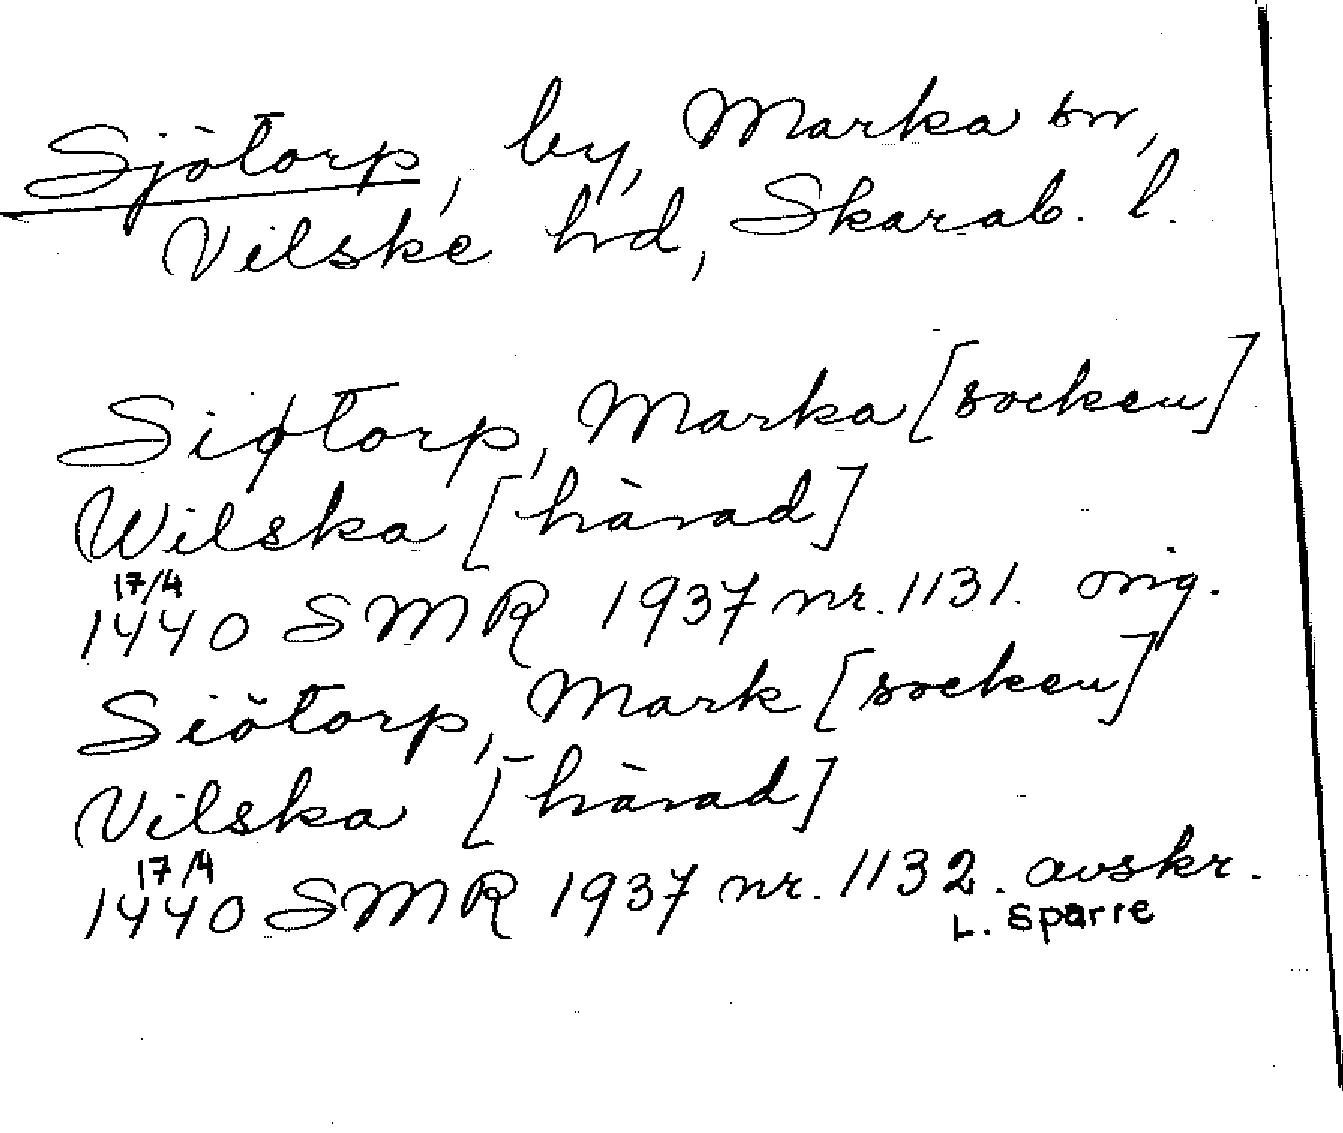 Sjötorp, by, Marka sn,
Vilske hd, Skarab. l.
Siøtorp, Marka [socken]
Wilska [härad]
17/4
1440 SMR 1937 nr. 1131. orig.
Siötorp, Mark [socken]
Vilska [härad]
17/4
1440 SMR 1937 nr. 1132. avskr.
L. Sparre